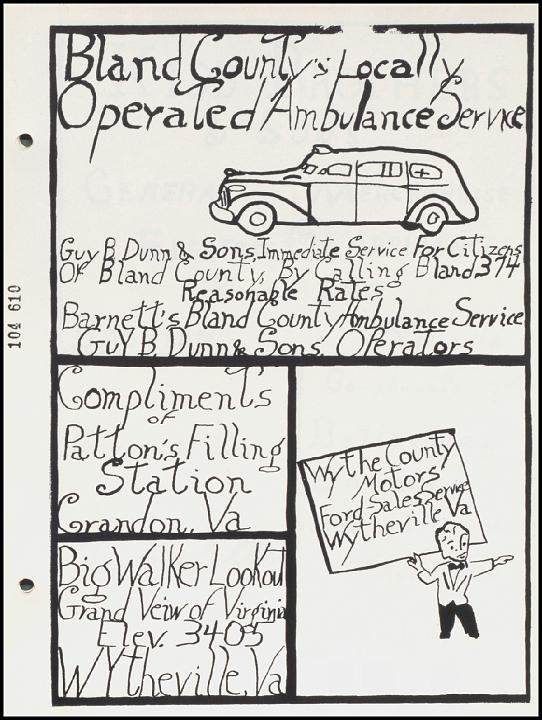 Bland County's Locally
Operated Ambulance Service
Guy B. Dunn & Sons, Immediate Service For Citizens
Of Bland County, By Calling Bland 374
Reasonable Rates
Barnett's Bland County Ambulance Service
Guy B. Dunn & Sons, Operators
Compliments
of
Patton's Filling
Station
Grandon, Va
Big Walker Lookout
Grand Veiw of Virginia
Elev. 3405
Wytheville, Va
Wythe County
Motors
Ford-Sales Service
Wytheville Va
104 610